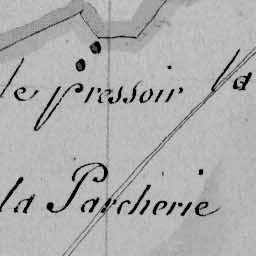 le pressoir la
la Parcherie